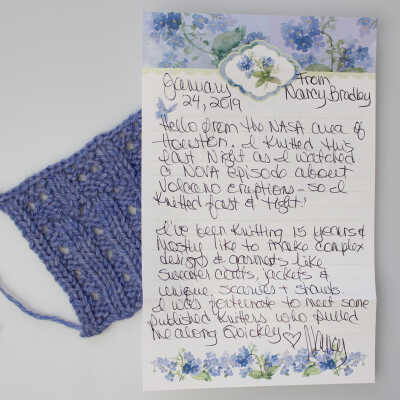 January
24, 2019
From
Nancy Bradley
Hello from the NASA area of
Houston. I knitted this
last night as I watched
a NOVA episode about
Volcano eruptions - so I
knitted fast & tight!
I've been knitting 15 years &
mostly like to make complex
designs & garments like
sweater coats, jackets &
unique, scarves + shawls.
I was fortunate to meet some
published knitters who pulled
me along quickly! ♡ Nancy